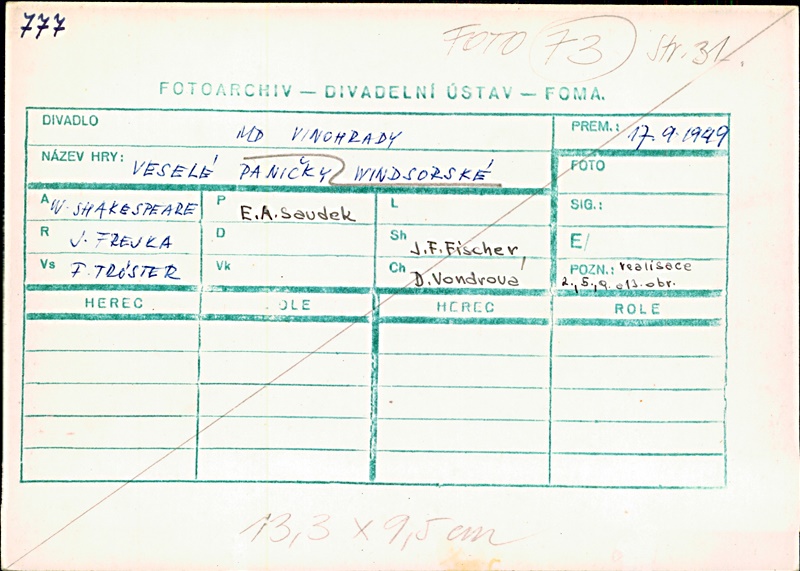 777
FOTO 73 str. 31.
FOTOARCHIV — DIVADELNÍ ÚSTAV — FOMA.
DIVADLO MD VINOHRADY PREM.: 17.9.1949
NÁZEV HRY: VESELÉ PANIČKY WINDSORSKÉ FOTO
A W. SHAKESPEARE P E.A.Saudek L SIG.:
R J. FREJKA D Sh J.F.Fischer, E/
Vs F. TRÖSTER Vk Ch D.Vondrová POZN.: realisace
2., 5., 9. a 13. obr.
HEREC OLE HEREC ROLE
13,3 x 9,5 cm